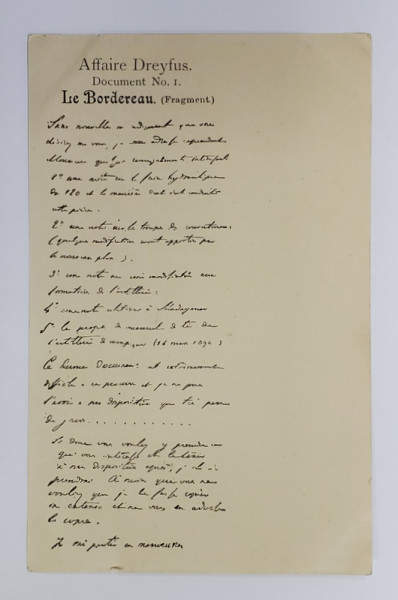 Affaire Dreyfus.
Document No. 1.
Le Bordereau. (Fragment.)
Sans nouvelle m indiquant que vous
me voir, je vous adresse cependant
Monsieur quelques renseignements
1° une note sur le frein hydraulique
du 120 et la manière dont
cette pièce.
2° une note sur les troupes de couverture
(quelques modifications sont apportées par
le nouveau plan).
3° une note sur une modification aux
formations de l'artillerie:
4° une note relative à Madagascar
5° le projet de manuel de tir de
l'artillerie de campagne (14 mars 1894)
Ce dernier Document est extrêmement
difficile à se procurer et je ne puis
l'avoir à ma disposition que très peu
de jours............
Si donc vous voulez y prendre ce
qui vous intéresse et le tenir
à ma disposition après, je le
prendrai. À moins que vous ne
vouliez que je le fasse copier
in extenso et ne vous en adresse
la copie.
Je vais partir en manœuvres